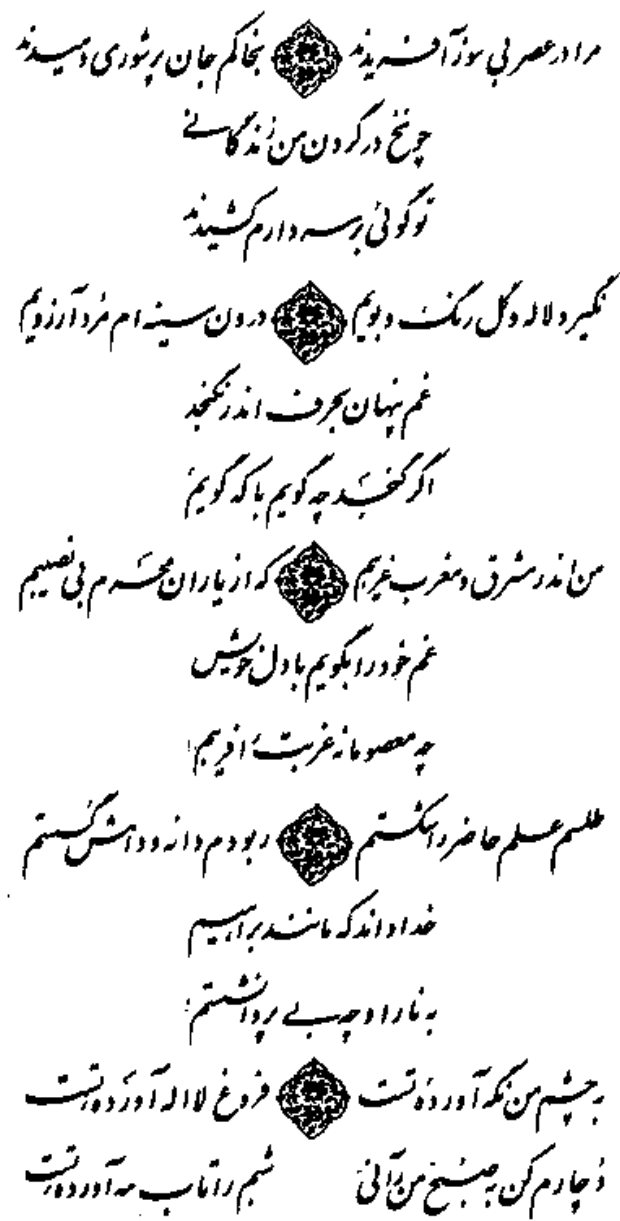 مرا در عصر بی سوز آفریدند بخاکم جان پر شوری دمیدند
چو نخ در گردن من زندگانے
تو گوئی بر سر دارم کشیدند
نگیرد لاله و گل رنگ و بویم درون سینه ام مرد آرزویم
غم پنهان بحرف اندر نگنجد
اگر گنجد چه گویم با که گویم
من اندر مشرق و مغرب غریبم که از یاران محرم بی نصیبم
غم خود را بگویم با دل خویش
چه معصومانه غربت را فریبم!
طلسم علم حاضر را شکستم ربودم دانه و دامش گسستم
خدا داند که مانند براهیم
به نار او چه بے پروا نشستم!
به چشم من نگه آوردهٔ تست فروغ لا اله آوردهٔ تست
دچارم کن به صبح من رآنی شبم را تاب مه آوردهٔ تست